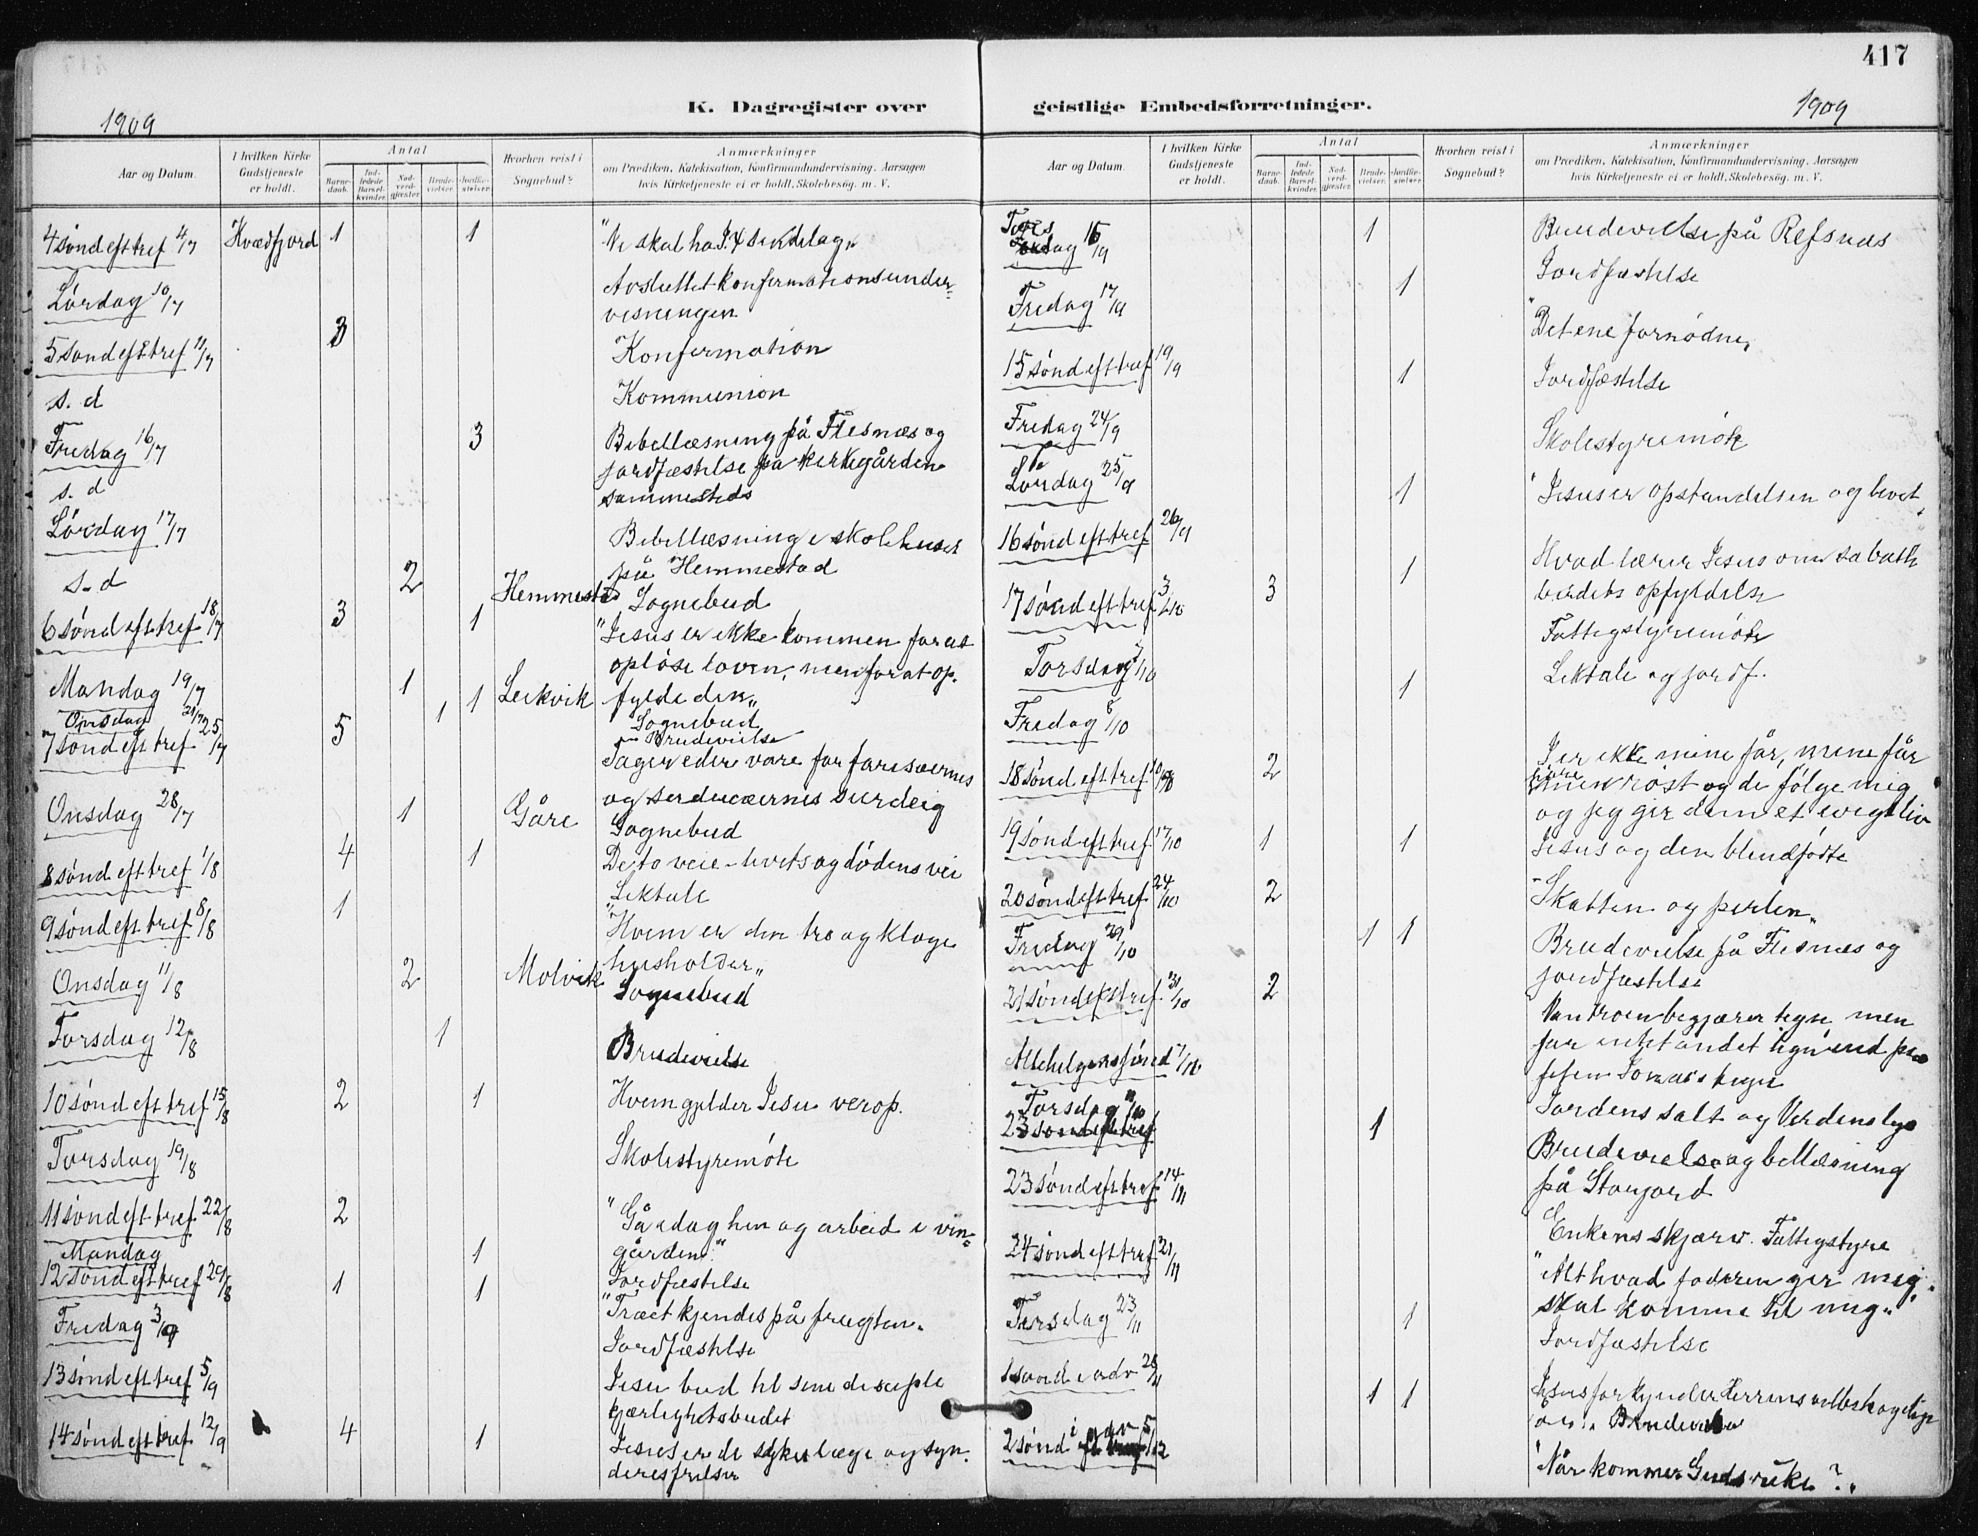 417
K. Dagregister over geistlige Embedsforretninger.
1909
1909
Aar og Datum.
I hvilken Kirke Gudstjeneste er holdt.
Antal
Barnedaab.
Indledede Barselkvinder.
Nadverdgjæster.
Brudevielser.
Jordfæstelser.
Hvorhen reist i Sognebud?
Anmærkninger
om Prædiken, Katekisation, Konfirmandundervisning, Aarsagen
hvis Kirketjeneste ei er holdt, Skolebesög, m. V.
4 sönd eft tref 4/7 Kvædfjord 1 1 "Vi skal ha
Avsluttet konfirmationsunder-
Lördag 10/7 visningen
5 sönd eft tref 11/7 3 Konfirmation
s. d Kommunion
Fredag 16/7 3 Bibellæsning på Flesnæs og
jordfæstelse på kirkegården
s. d sammesteds
Lördag 17/7 Bibellæsning i skolehuset
på Hemmestad
s. d 2 Hemmestad Sognebud
6 sönd eft tref 18/7 3 1 "Jesus er ikke kommen for at
oplöse loven, men for at op-
Mandag 19/7 1 1 Leikvik fylde den"
Sognebud
Onsdag 21/7 1 Brudevielse
7 sönd eft tref 25/7 5 Tager eder vare for farisæernes
og sadducæernes surdeig
Onsdag 28/7 1 Gåre Sognebud
8 sönd eft tref 1/8 4 1 De to veie - livets og dödens vei
Liktale
9 sönd eft tref 8/8 1 "Hvem er den tro og kloge
husholder"
Onsdag 11/8 2 Molvik Sognebud
Torsdag 12/8 1 Brudevielse
10 sönd eft tref 15/8 2 1 Hvem gjelder Jesu verop.
Torsdag 19/8 Skolestyremöte
11 sönd eft tref 22/8 2 "Gå idag hen og arbeid i vin-
gården."
Mandag 1 Jordfæstelse
12 sönd eft tref 29/8 1 1 "Træet kjendes på frugten"
Fredag 3/9 Jordfæstelse
13 sönd eft tref 5/9 Jesu bud til sine disciple
kjærlighetsbudet
14 sönd eft tref 12/9 4 1 Jesus er de sykes læge og syn-
deres frelser
Aar og Datum.
I hvilken Kirke Gudstjeneste er holdt.
Antal
Barnedaab.
Indledede Barselkvinder.
Nadverdgjæster.
Brudevielser.
Jordfæstelser.
Hvorhen reist i Sognebud?
Anmærkninger
om Prædiken, Katekisation, Konfirmandundervisning, Aarsagen
hvis Kirketjeneste ei er holdt, Skolebesög, m. V.
Torsdag 16/9 1 Brudevielse på Refsnæs
Fredag 17/9 1 Jordfæstelse
15 sönd eft tref 19/9 "Det ene fornödne"
Fredag 24/9 1 Jordfæstelse
Lördag 25/9 Skolestyremöte
16 sönd eft tref 26/9 1 "Jesus er opstandelsen og livet"
17 sönd eft tref 3/10 3 1 Hvad lærer Jesus om sabath
budets opfyldelse
Torsdag 7/10 Fattigstyremöte
Fredag 8/10 1 Liktale og jordf.
18 sönd eft tref 10/10 2 I er ikke mine får, mine får
höre min röst og de fölge mig
og jeg gir dem et evigt liv
19 sönd eft tref 17/10 1 1 Jesus og den blindfödte
20 sönd eft tref 24/10 2 "Skatten og perlen"
Fredag 29/10 1 1 Brudevielse på Flesnæs og
jordfæstelse
21 sönd eft tref 31/10 2 Vantroen begjærer tegn men
får intet andet tegn end pro
feten Jonas's tegn
Allehelgenssönd 7/11 Jordens salt og Verdens lys
Torsdag 11/11 1 Brudevielse og bibellæsning
på Storjord
23 sönd eft tref 14/11 Enkens skjærv. Fattigstyre
24 sönd eft tref 21/11 "Alt hvad faderen gir mig,
skal komme til mig"
Tirsdag 23/11 1 Jordfæstelse
1 sönd i adv 28/11 1 1 Jesus forkynder Herrens velbehagelige
år". Brudevielse
2 sönd i adv 5/12 "Når kommer Guds rike?"